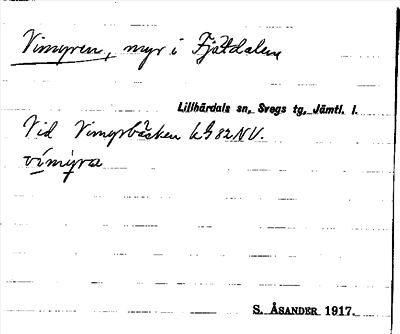 Vimyren, myr i Fjätdalen
Lillhärdals sn, Svegs tg, Jämtl. l.
Vid Vimyrbäcken kG82NV.
vimyra
S. ÅSANDER 1917.